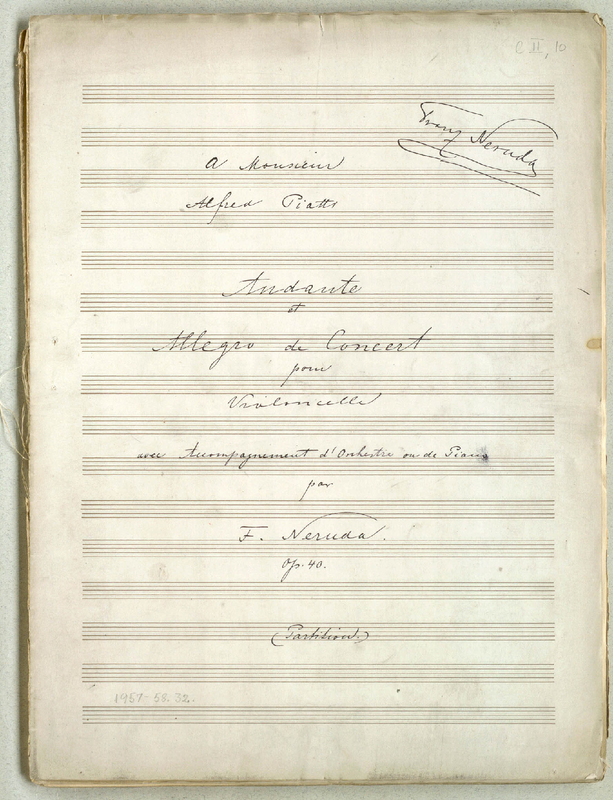 C II, 10
Franz Neruda
A Monsieur
Alfred Piatti
Andante
et
Allegro de Concert
pour
Violoncelle
avec Accompagnement d'Orchestre ou de Piano
par
F. Neruda.
Op. 40.
(Partition.)
1957-58. 32.